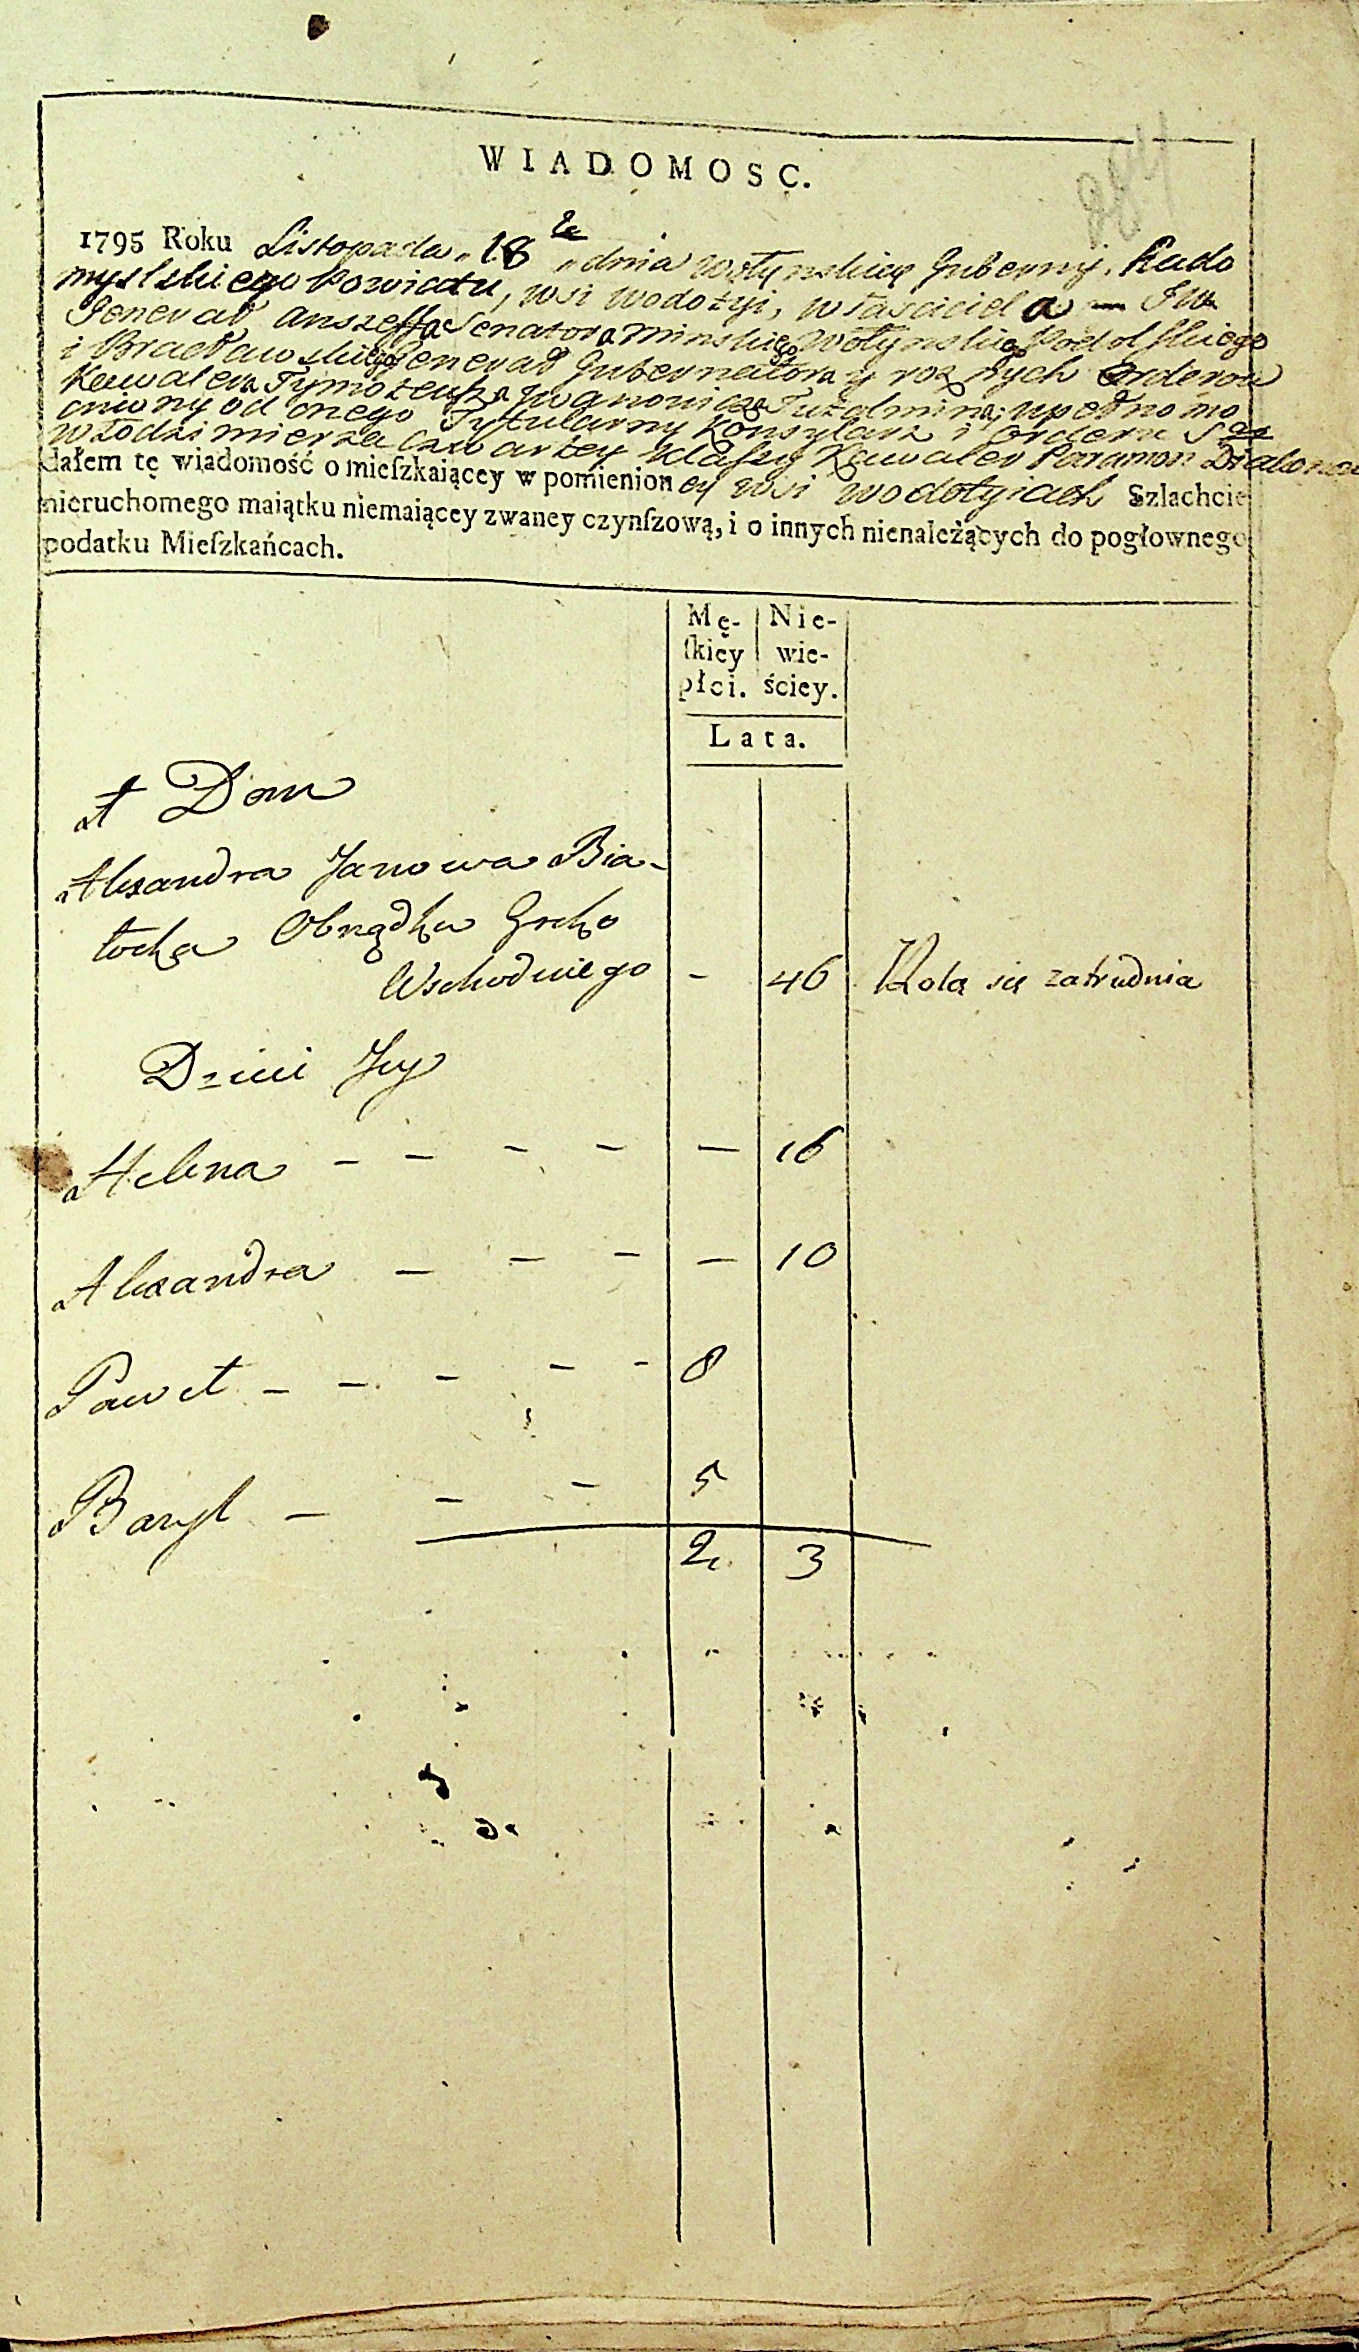 WIADOMOSC.
884
1795 Roku Listopada 18 dnia Wołynskiey Guberny, Rado
myslskiego Powiatu, wsi Wodotyi, właściciela — JW
Generał Anszeffa Senatora Minskiego Wołynskiego Podolskiego
i Bracławskiego Generał Gubernatora y roznych Orderow
Kawalera Tymofeusza Tutolmina, upełnomo
cniony od onego Tytularny Konsyliarz i Orderu S
Włodzimierza czwartey Klassy Kawaler Paramon
dałem tę wiadomość o mieſzkaiącey w pomienioney wsi Wodotyiach Szlachcie
nieruchomego maiątku niemaiącey zwaney czynſzową, i o innych nienależących do pogłownego
podatku Mieſzkańcach.
Mę- Nie-
ſkiey wie-
płci. ściey.
Lata.
A Dom
Alexandra Janowa Bia-
łocka Obrządku Greko
Wschodniego - 46 Rolą się zatrudnia
Dzieci Jey
Helena - - - - — 16
Alexandra — — — — 10
Paweł - - - - - 8
Bazyl — - - 5
2 3